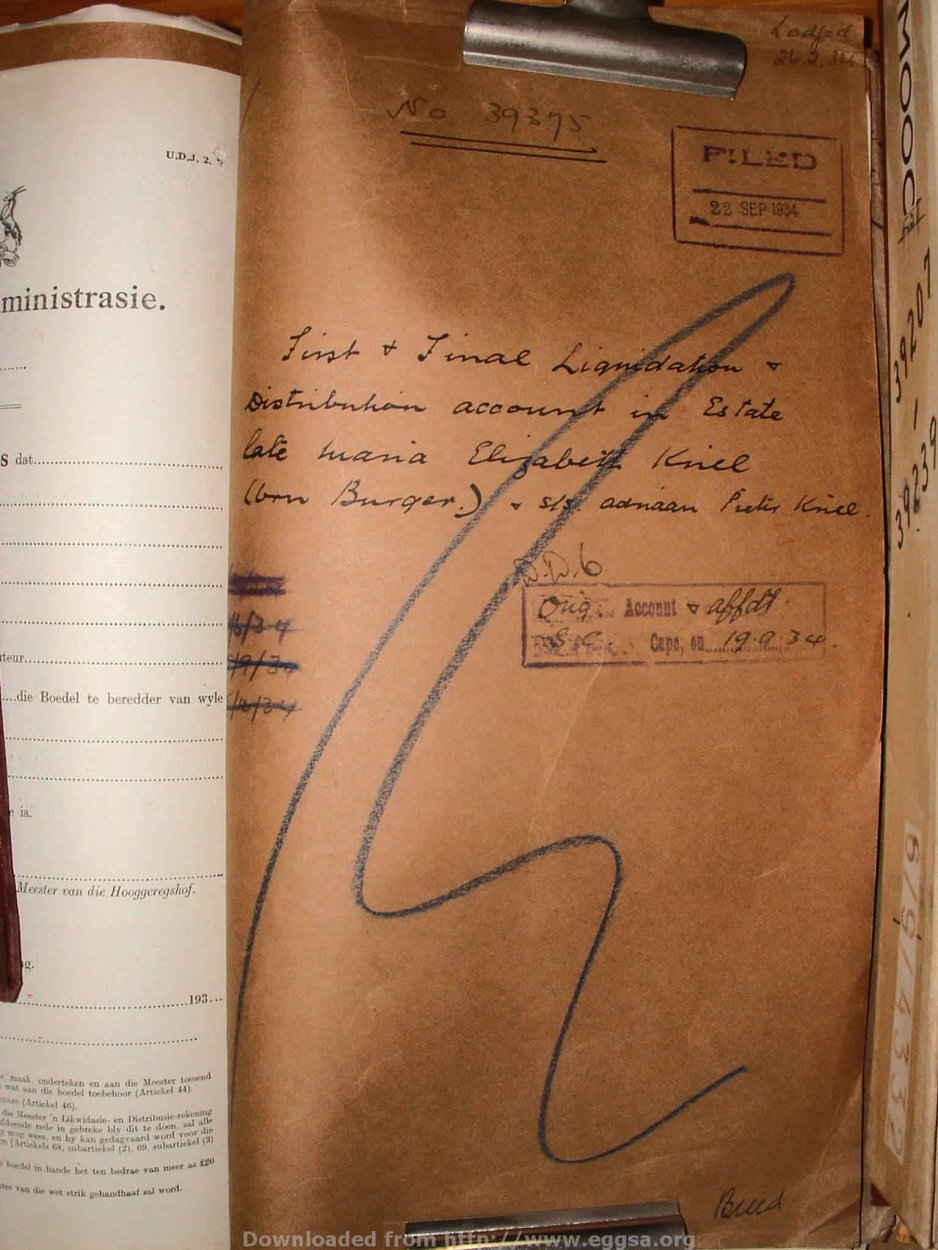 U.D.J. 2.
ministrasie.
S dat
teur
die Boedel te beredder van wyle
e is.
Meester van die Hooggeregshof.
ng.
193
maak, onderteken en aan die Meester toesend
wat aan die boedel toebehoor (Artiekel 44).
(Artiekel 46).
die Meester 'n Likwidasie- en Distribusie-rekening
afdoende rede in gebreke bly dit te doen, sal alle
mog wees, en hy kan gedagvaard word voor die
[Artiekels 68, subartiekel (2), 69, subartiekel (3)
boedel in hande het ten bedrae van meer as £20
van die wet strik gehandhaaf sal word.
Lodged
26.2.34
No 39375
FILED
22 SEP 1934
First & Final Liquidation &
Distribution account in Estate
late Maria Elizabeth Kriel
(born Burger.) & s/s. adriaan Pieter Kriel.
D.D.6
Orig Account & affdt.
Cape, on 19.9.34.
6/34
/9/34
/10/34
MOOC
6/9/
39207
-
39239
6/9/4332
Downloaded from http://www.eggsa.org